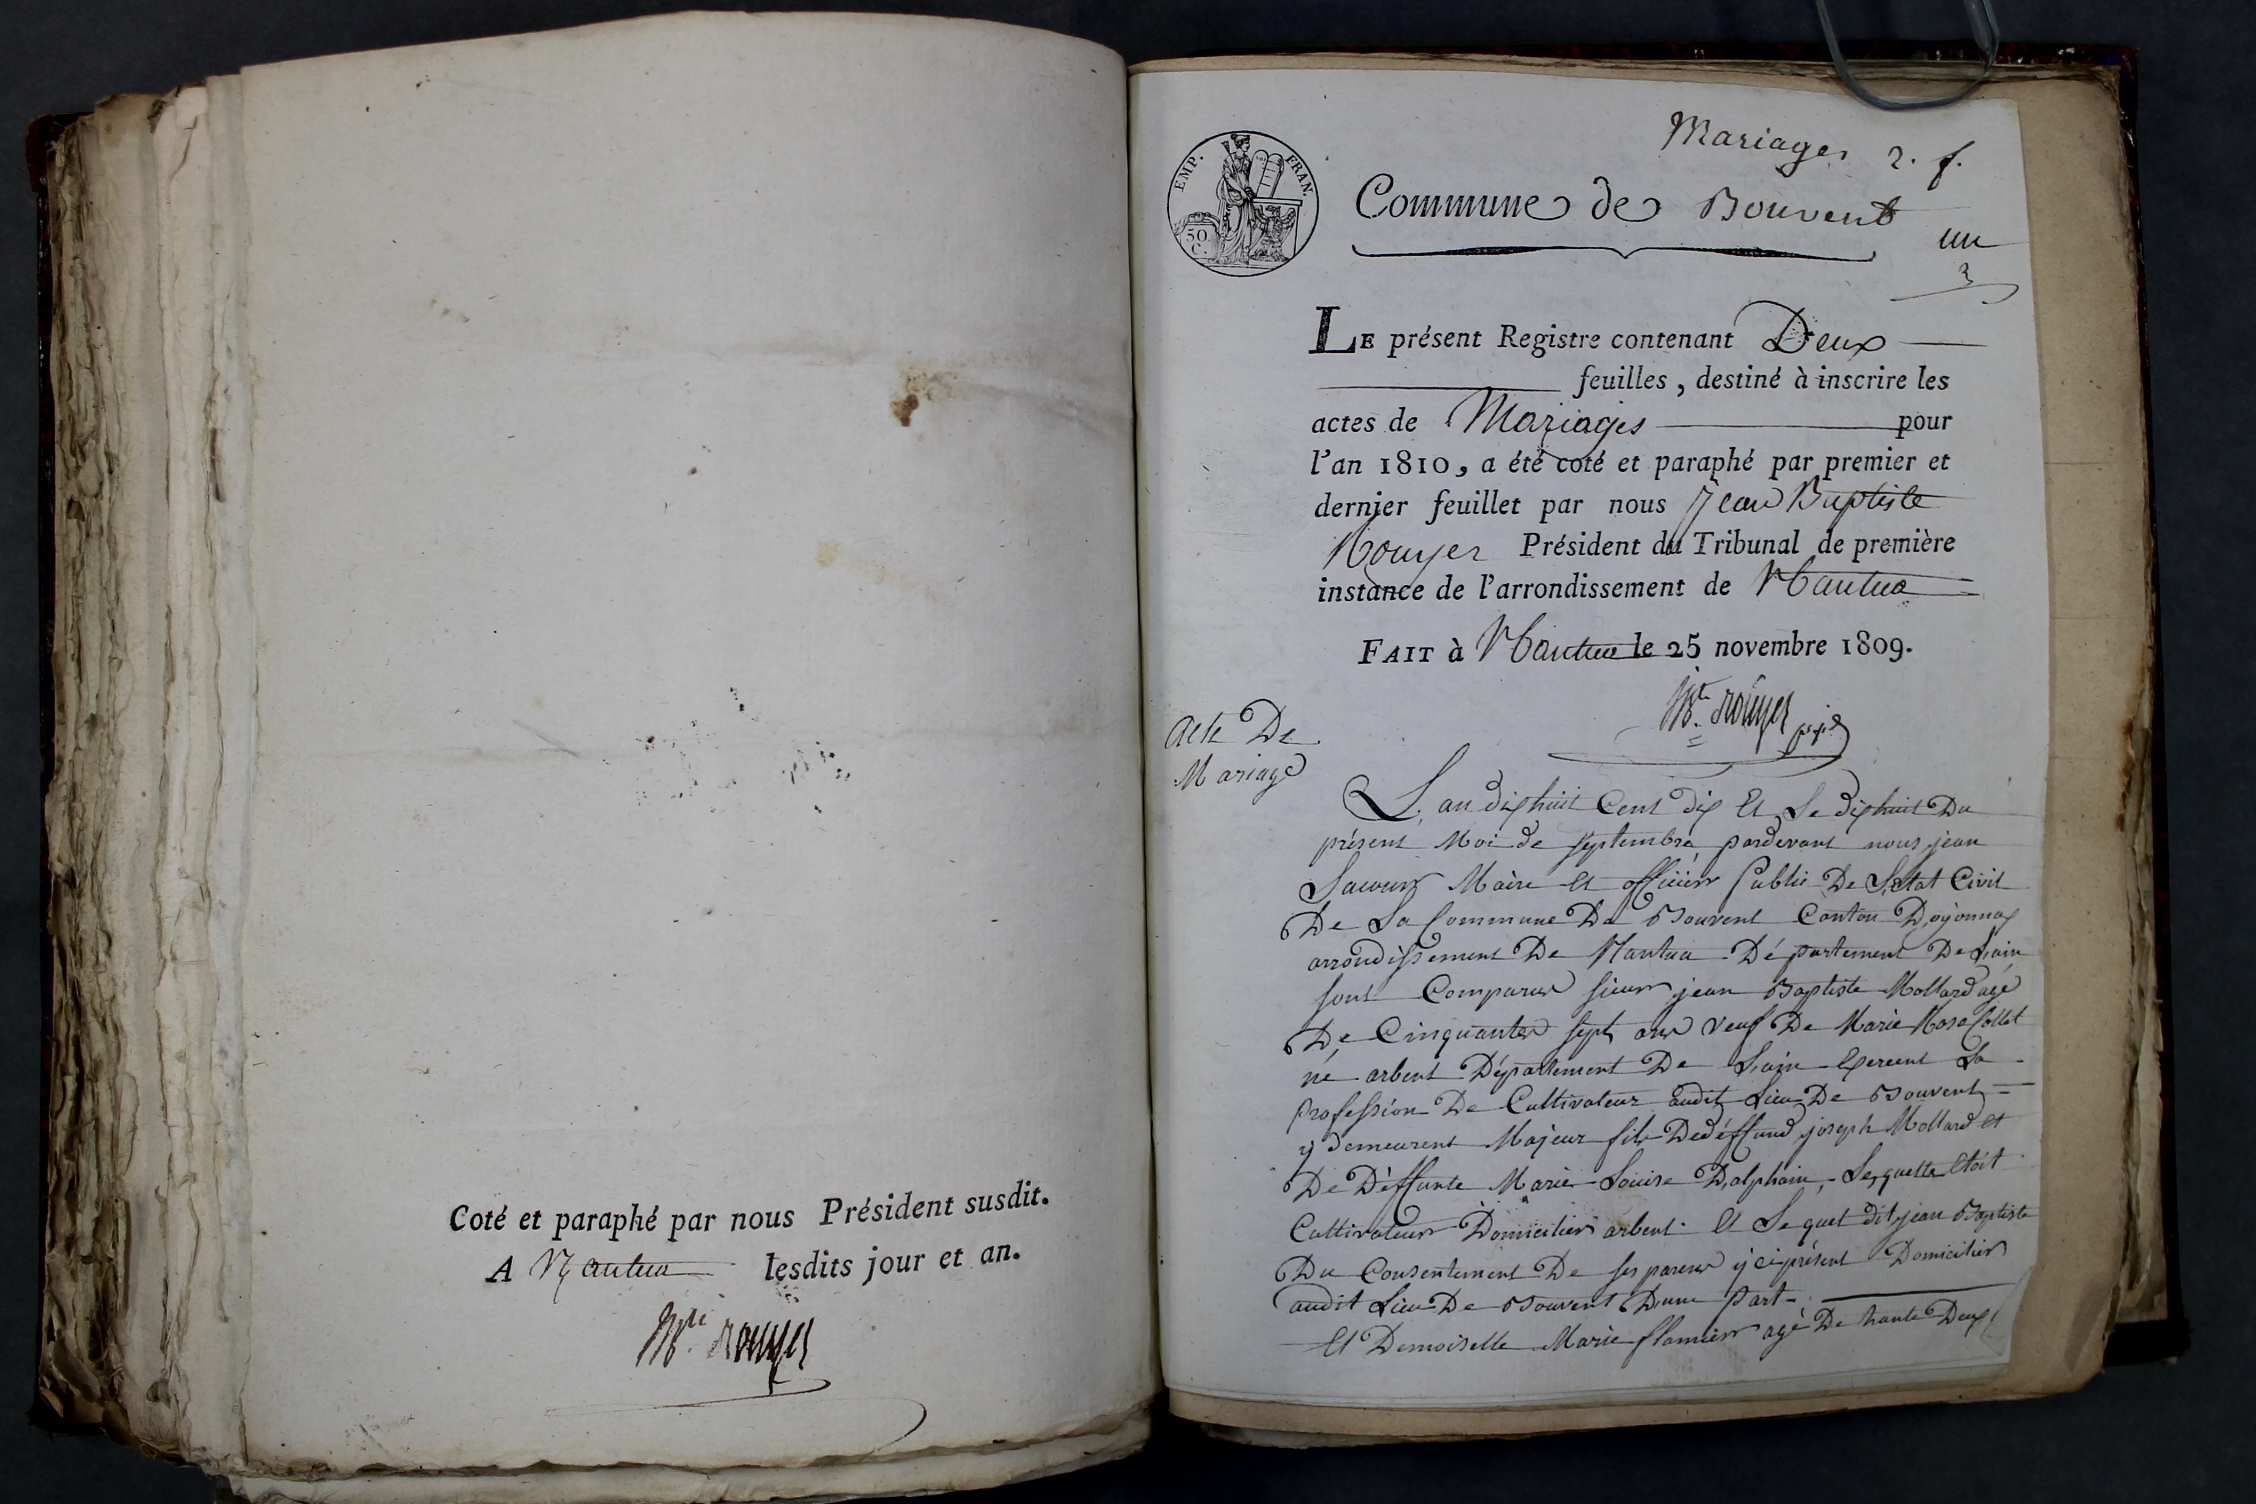 Coté et paraphé par nous Président susdit.
A Nantua lesdits jour et an.
Mte. rouyer
EMP. FRAN.
50 C.
Mariages 2. f.
Commune de Bouvent
un
Le présent Registre contenant Deux
feuilles, destiné à inscrire les
actes de Mariages pour
l'an 1810, a été coté et paraphé par premier et
dernier feuillet par nous Jean Baptiste
Rouyer Président du Tribunal de première
instance de l'arrondissement de Nantua
Fait à Nantua le 25 novembre 1809.
rouyer
Acte De
Mariage
L'an dixhuit Cent dix Et Le dixhuit Du
présent Moi de septembre pardevant nous jean
Maire Et officier Public De L'Etat Civil
De La Commune De Bouvent Canton D'oyonnax
arrondissement De Nantua Département De L'ain
sont Comparus sieur jean Baptiste Mollard agé
De Cinquante sept ans veuf De Marie Rose Collet
né arbent Département De L'ain Exercent La
Profession De Cultivateur audit Lieu De Bouvent
y Demeurent Majeur fils Dedéffund joseph Mollard et
De Déffunte Marie Louise Dalphain, Lesquelle Etoit
Cultivateur Domicilier arbent. Et Le quel dit jean Baptiste
Du Consentement De ses parens y ci présent Domicilier
audit Lieu De Bouvent D'une Part
Et Demoiselle Marie flamier agé De trante Deux